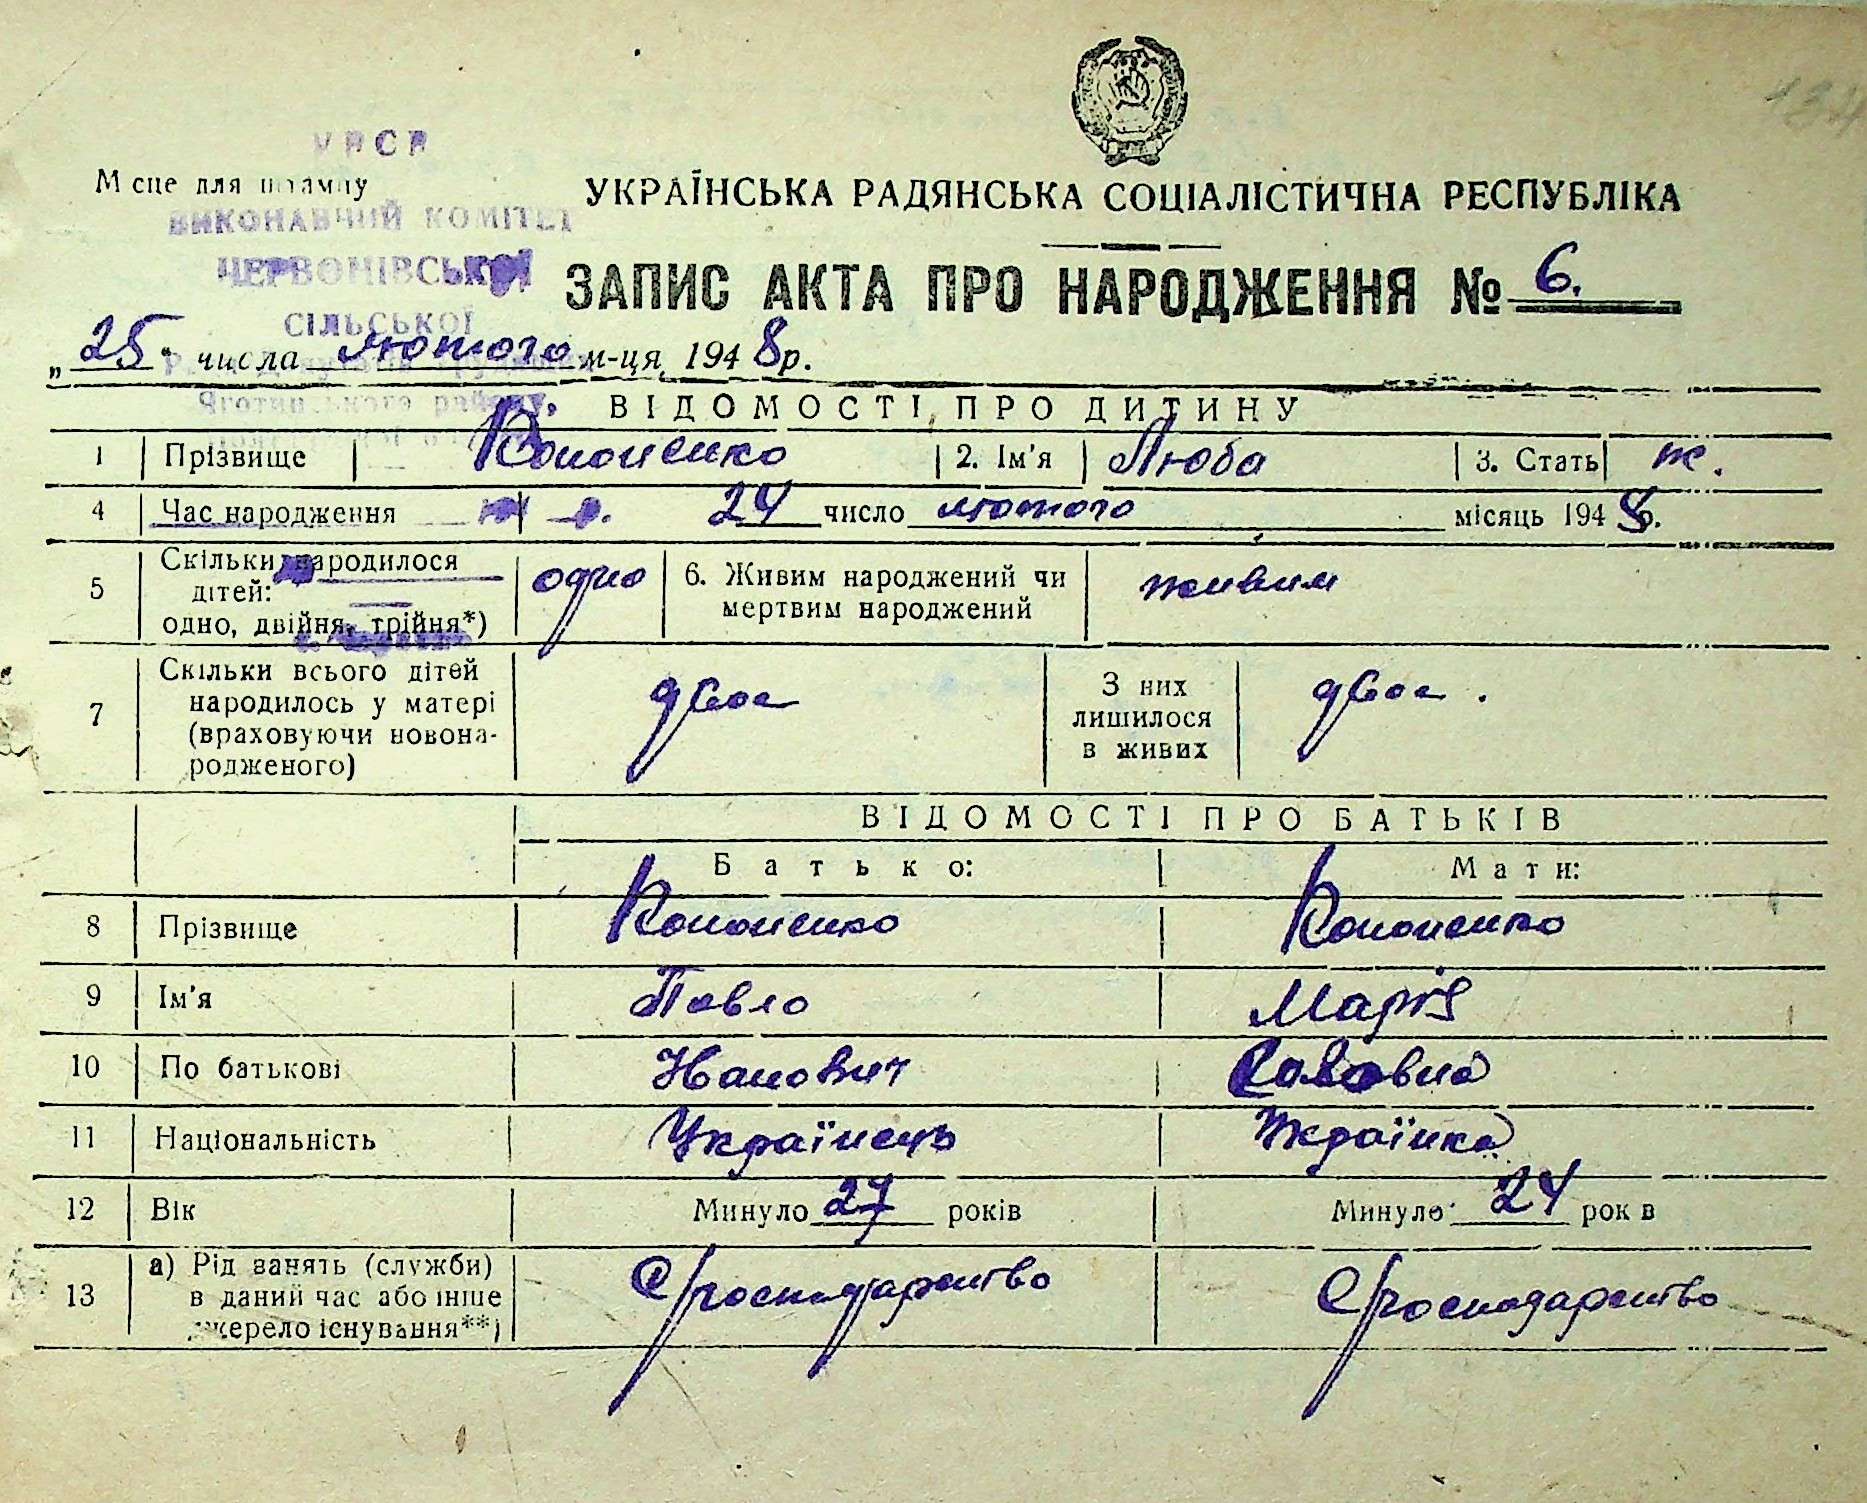 УРСР
Місце для штампу
ВИКОНАВЧИЙ КОМІТЕТ
ЧЕРВОНІВСЬКОЇ
СІЛЬСЬКОЇ
Яготинського району
УКРАЇНСЬКА РАДЯНСЬКА СОЦІАЛІСТИЧНА РЕСПУБЛІКА
ЗАПИС АКТА ПРО НАРОДЖЕННЯ № 6.
„25" числа лютого м-ця, 1948 р.
ВІДОМОСТІ ПРО ДИТИНУ
1 Прізвище Кононенко 2. Ім'я Люба 3. Стать ж.
4 Час народження 24 число лютого місяць 1948 р.
5 Скільки народилося дітей: одно, двійня, трійня*) одно 6. Живим народжений чи мертвим народжений живим
7 Скільки всього дітей народилось у матері (враховуючи новона-родженого) двоє З них лишилося в живих двоє.
ВІДОМОСТІ ПРО БАТЬКІВ
Батько: Мати:
8 Прізвище Кононенко Кононенко
9 Ім'я Павло Марія
10 По батькові Іванович Савовна
11 Національність Українець Українка
12 Вік Минуло 27 років Минуло 24 років
13 а) Рід занять (служби) в даний час або інше джерело існування**) С/господарство С/господарство